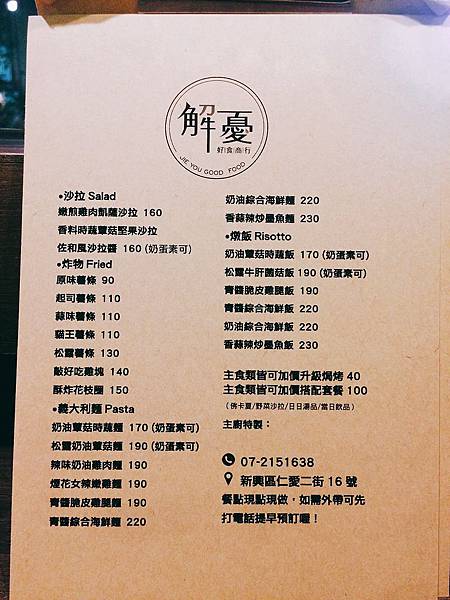 解憂
好食商行
JIE YOU GOOD FOOD
•沙拉 Salad
嫩煎雞肉凱薩沙拉 160
香料時蔬蕈菇堅果沙拉
佐和風沙拉醬 160 (奶蛋素可)
•炸物 Fried
原味薯條 90
起司薯條 110
蒜味薯條 110
貓王薯條 110
松露薯條 130
敲好吃雞塊 140
酥炸花枝圈 150
•義大利麵 Pasta
奶油蕈菇時蔬麵 170 (奶蛋素可)
松露奶油蕈菇麵 190 (奶蛋素可)
辣味奶油雞肉麵 190
煙花女辣嫩雞麵 190
青醬脆皮雞腿麵 190
青醬綜合海鮮麵 220
奶油綜合海鮮麵 220
香蒜辣炒墨魚麵 230
•燉飯 Risotto
奶油蕈菇時蔬飯 170 (奶蛋素可)
松露牛肝菌菇飯 190 (奶蛋素可)
青醬脆皮雞腿飯 190
青醬綜合海鮮飯 220
奶油綜合海鮮飯 220
香蒜辣炒墨魚飯 230
主食類皆可加價升級焗烤 40
主食類皆可加價搭配套餐 100
(佛卡夏/野菜沙拉/日日湯品/當日飲品)
主廚特製：
07-2151638
新興區仁愛二街 16 號
餐點現點現做，如需外帶可先
打電話提早預訂喔！